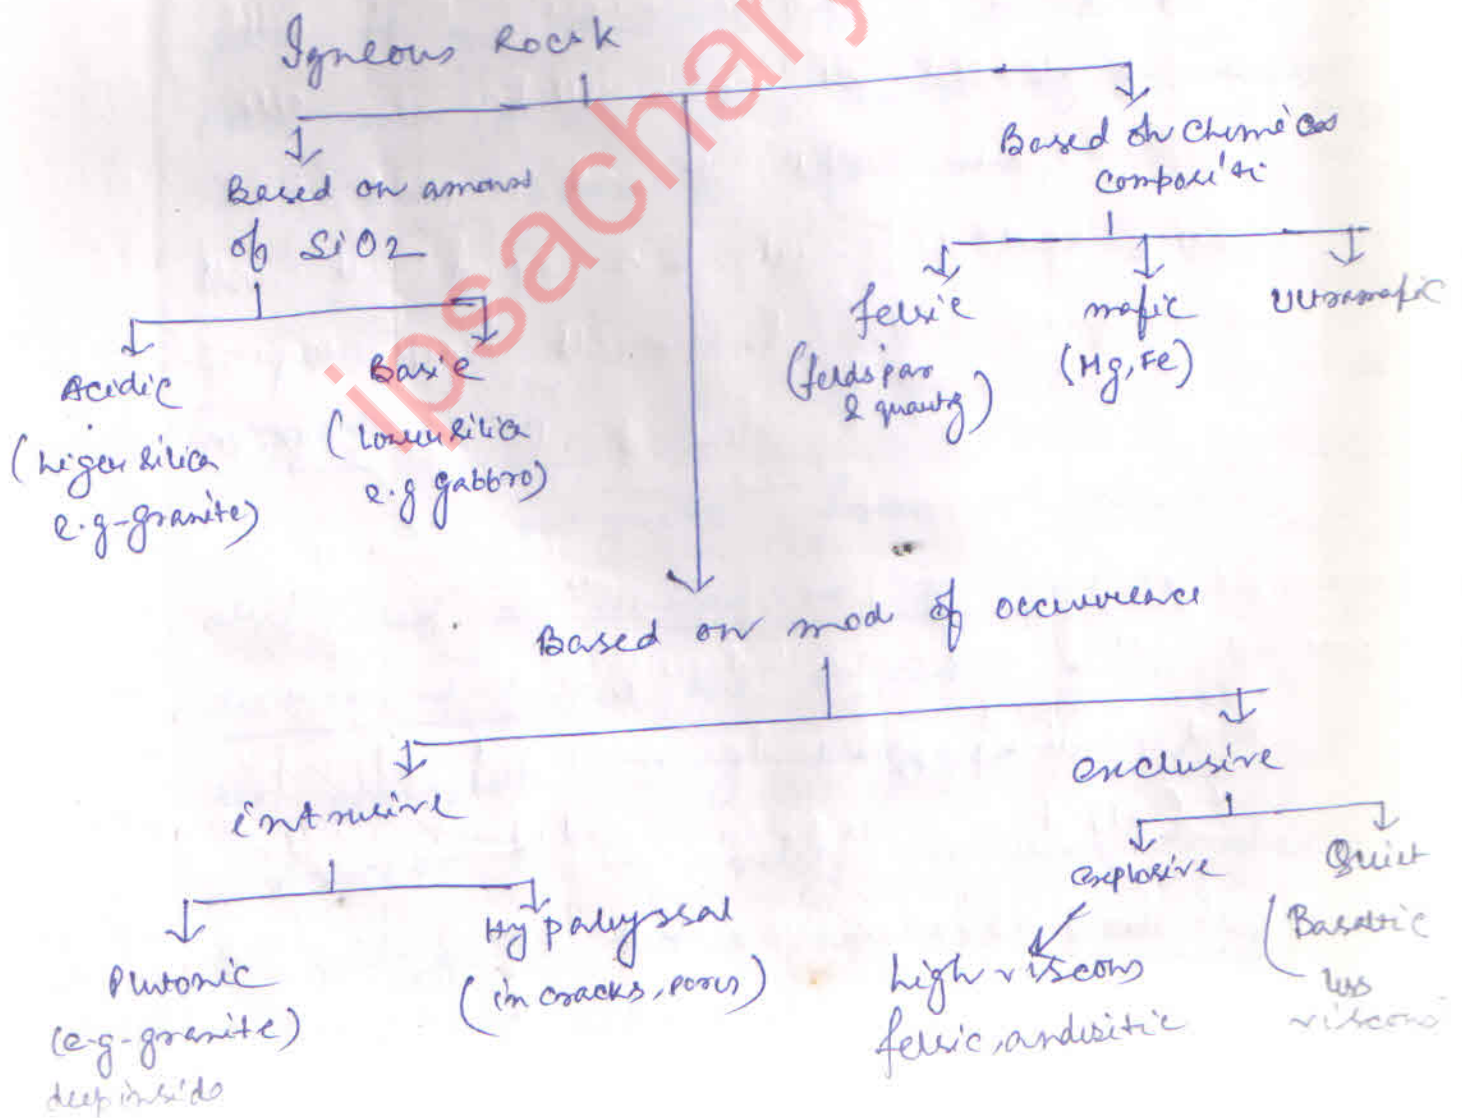 Igneous Rock
Based on amount
of SiO2
Acidic
(higer silica
e.g-granite)
Basic
(lower silica
e.g gabbro)
Based on Chemical
composi
felsic
(feldspar
& quartz)
mafic
(Mg, Fe)
Ultramafic
Based on mod of occurrence
intrusive
Plutonic
(e-g-granite)
deep inside
Hypabyssal
(in cracks, pores)
exclusive
explosive
high viscous
felsic, andisitic
Quiet
(Basaltic
less
viscous
ipsachary